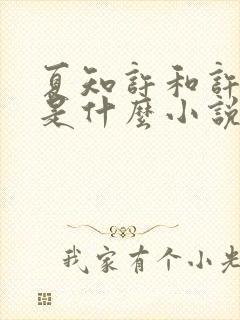 夏知許和許
是什麼小說
我家有个小先